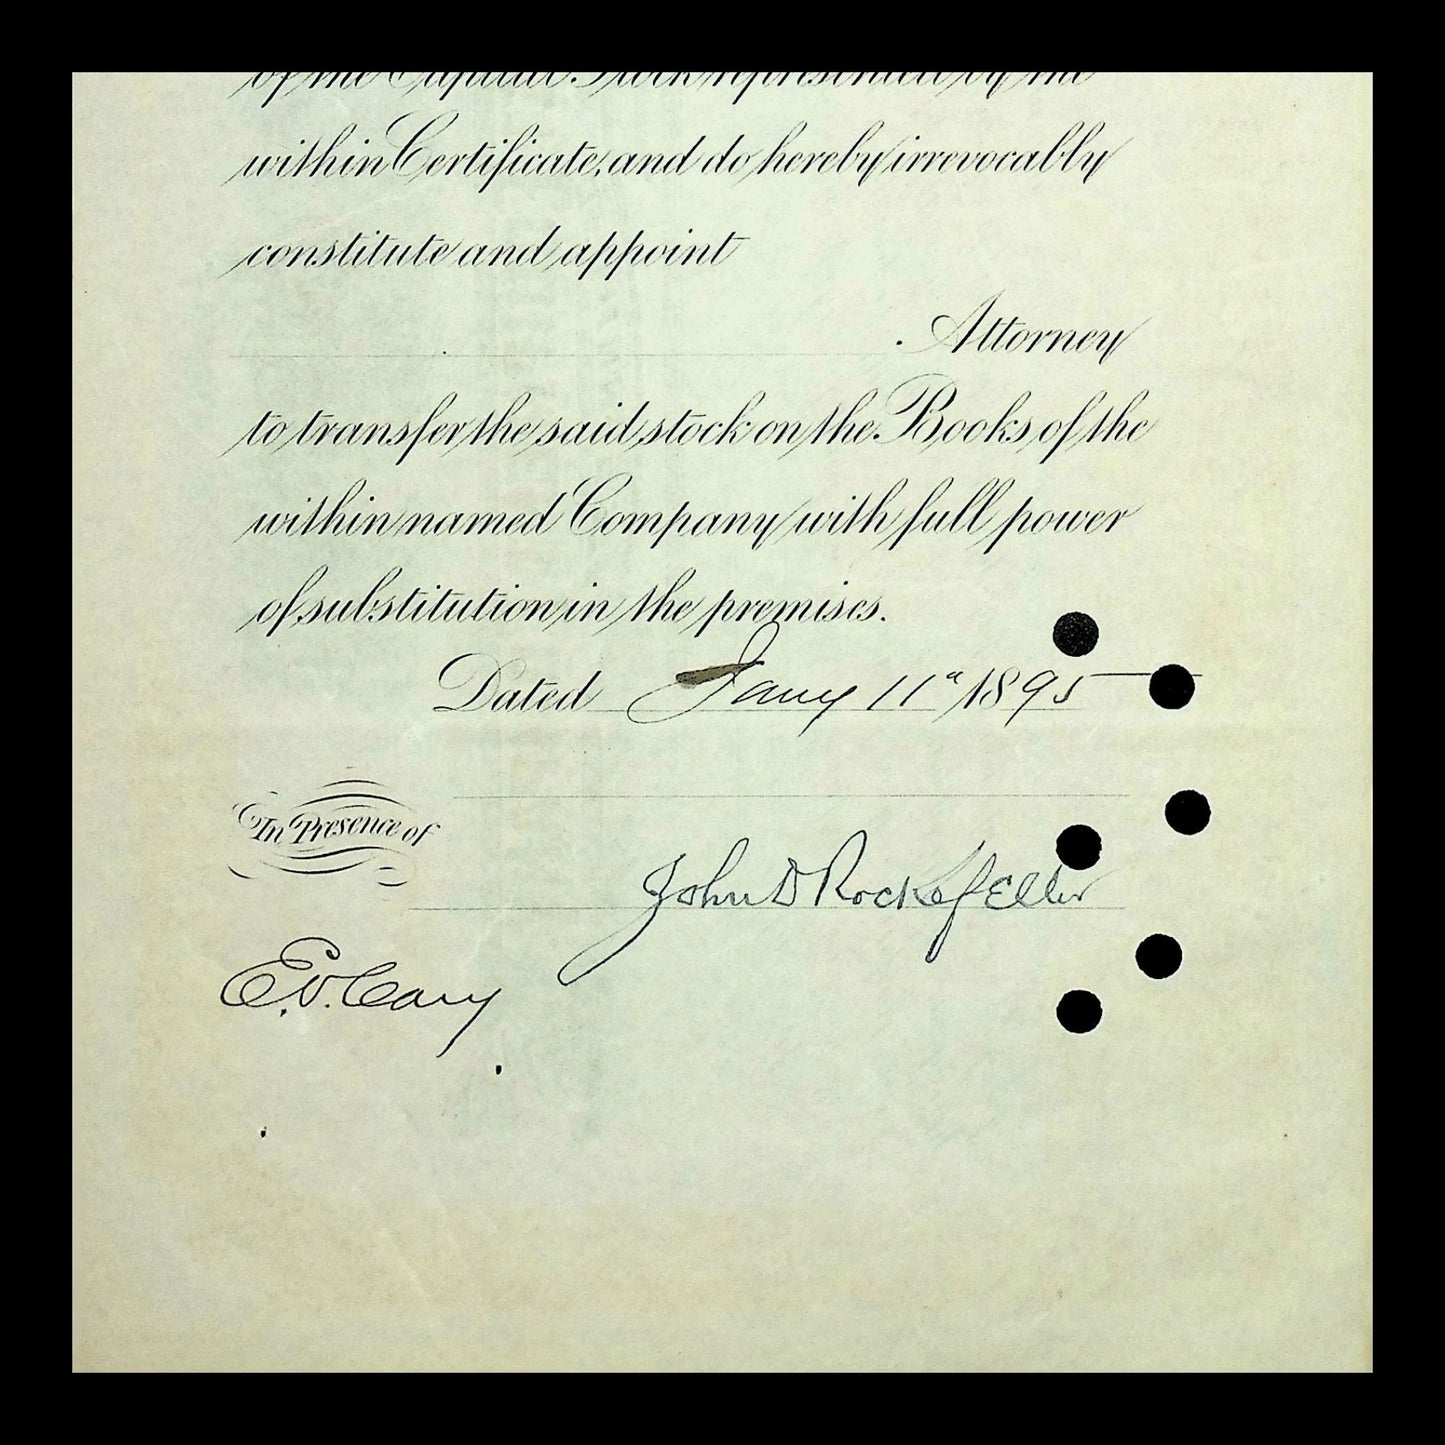 of the Capital Stock represented by the
within Certificate, and do hereby irrevocably
constitute and appoint
Attorney
to transfer the said stock on the Books of the
within named Company with full power
of substitution in the premises.
Dated Jany 11" 1895
In Presence of
John D Rockefeller
E.V. Cary